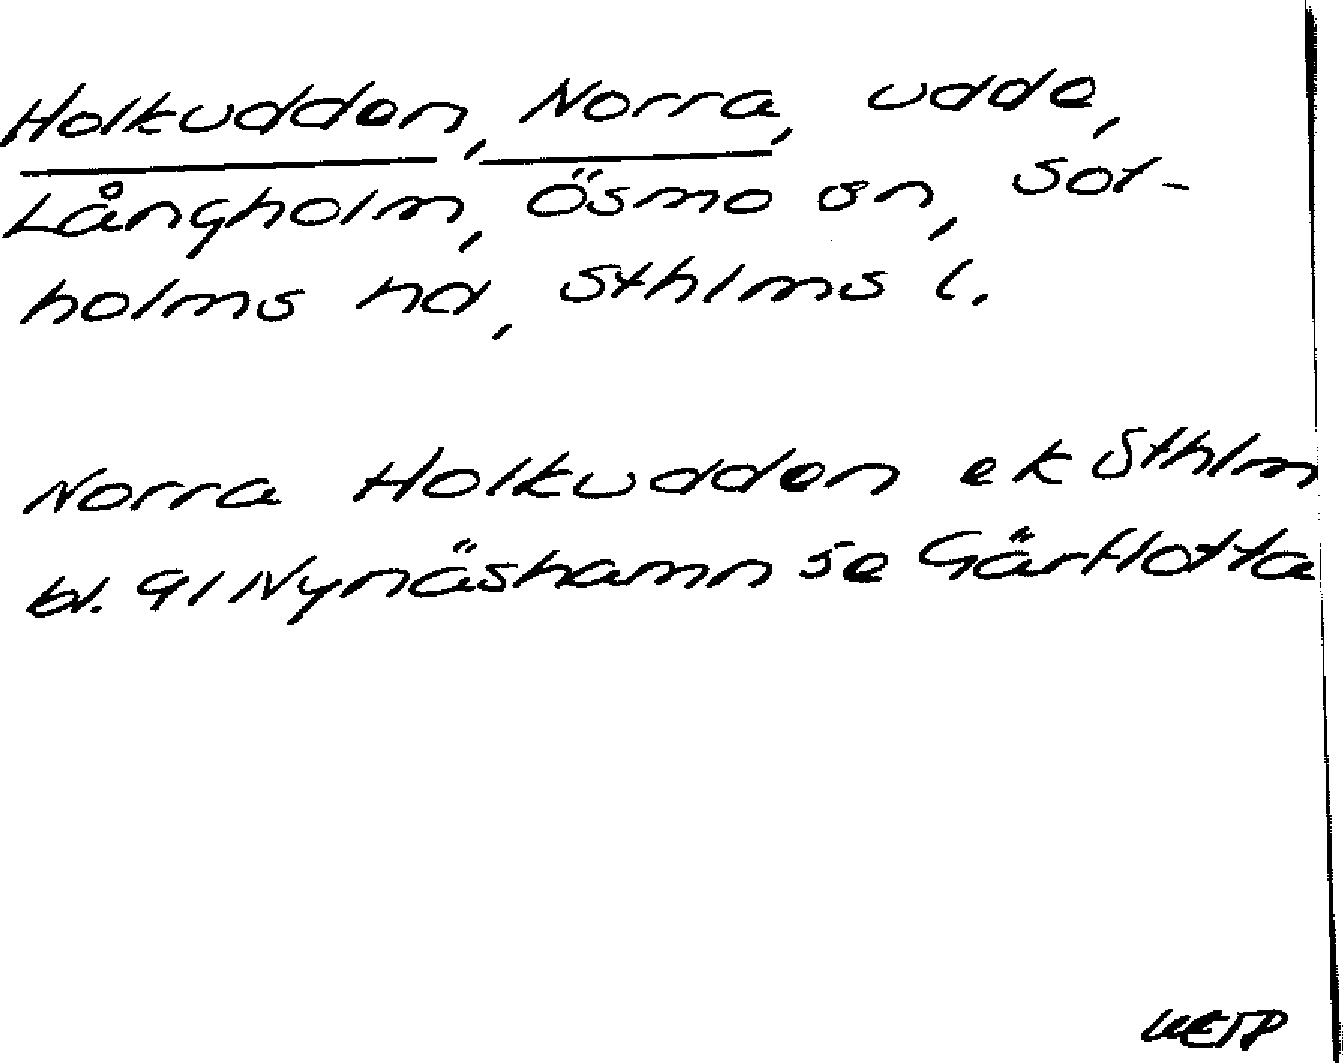 Holkudden, Norra, udde,
Långholm, Ösmo sn, Sot-
holms hd, Sthlms l.
Norra Holkudden ek Sthlm
bl. 91 Nynäshamn se Gårflotta